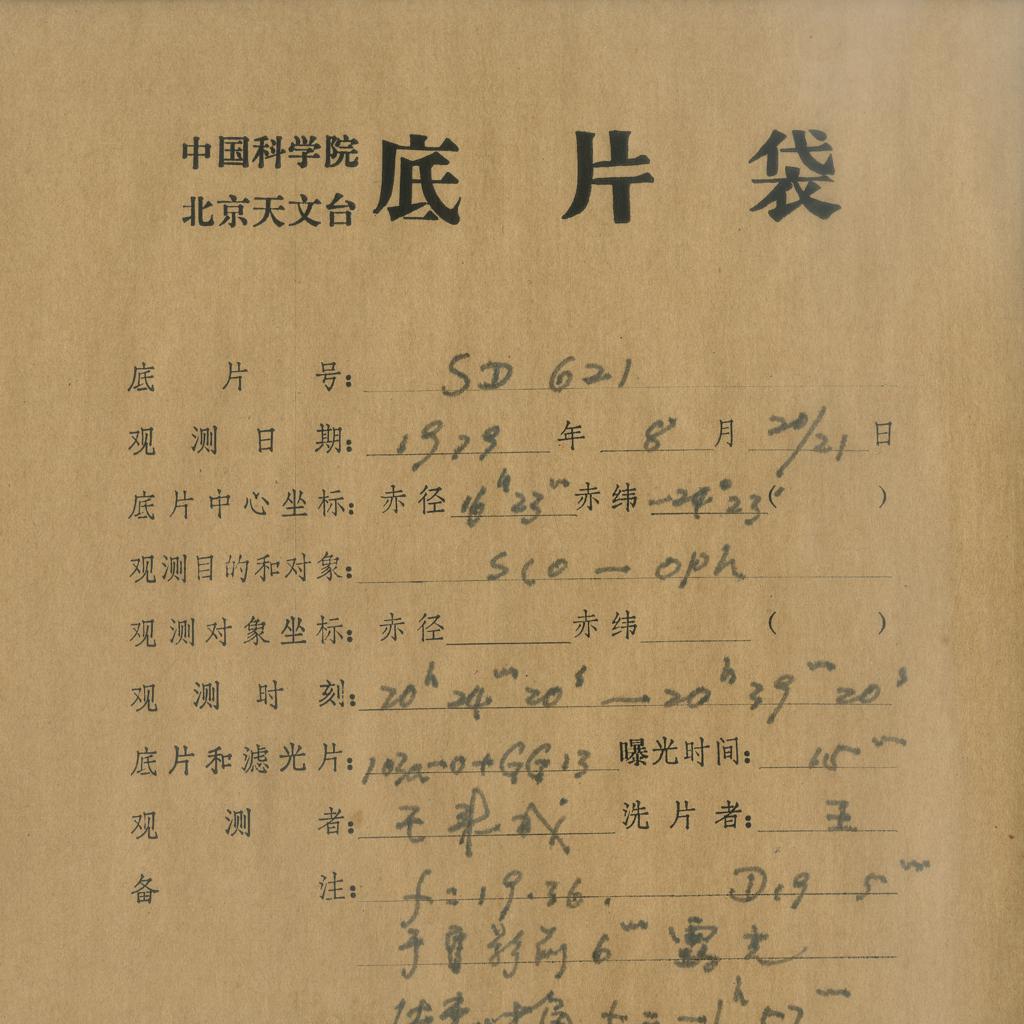 中国科学院
北京天文台
底片袋
底片号: SD 621
观测日期: 1979 年 8 月 20/21 日
底片中心坐标: 赤径 16ʰ23ᵐ 赤纬 -24°23′( )
观测目的和对象: Sco — oph
观测对象坐标: 赤径 赤纬 ( )
观测时刻: 20ʰ 24ᵐ 20ˢ — 20ʰ 39ᵐ 20ˢ
底片和滤光片: 103a-O+GG13 曝光时间: 15ᵐ
观测者: 王 成 洗片者: 王
备注: f=19.36. D19 5ᵐ
于 影前 6ᵐ 露光
时角 t=-1ʰ 57ᵐ